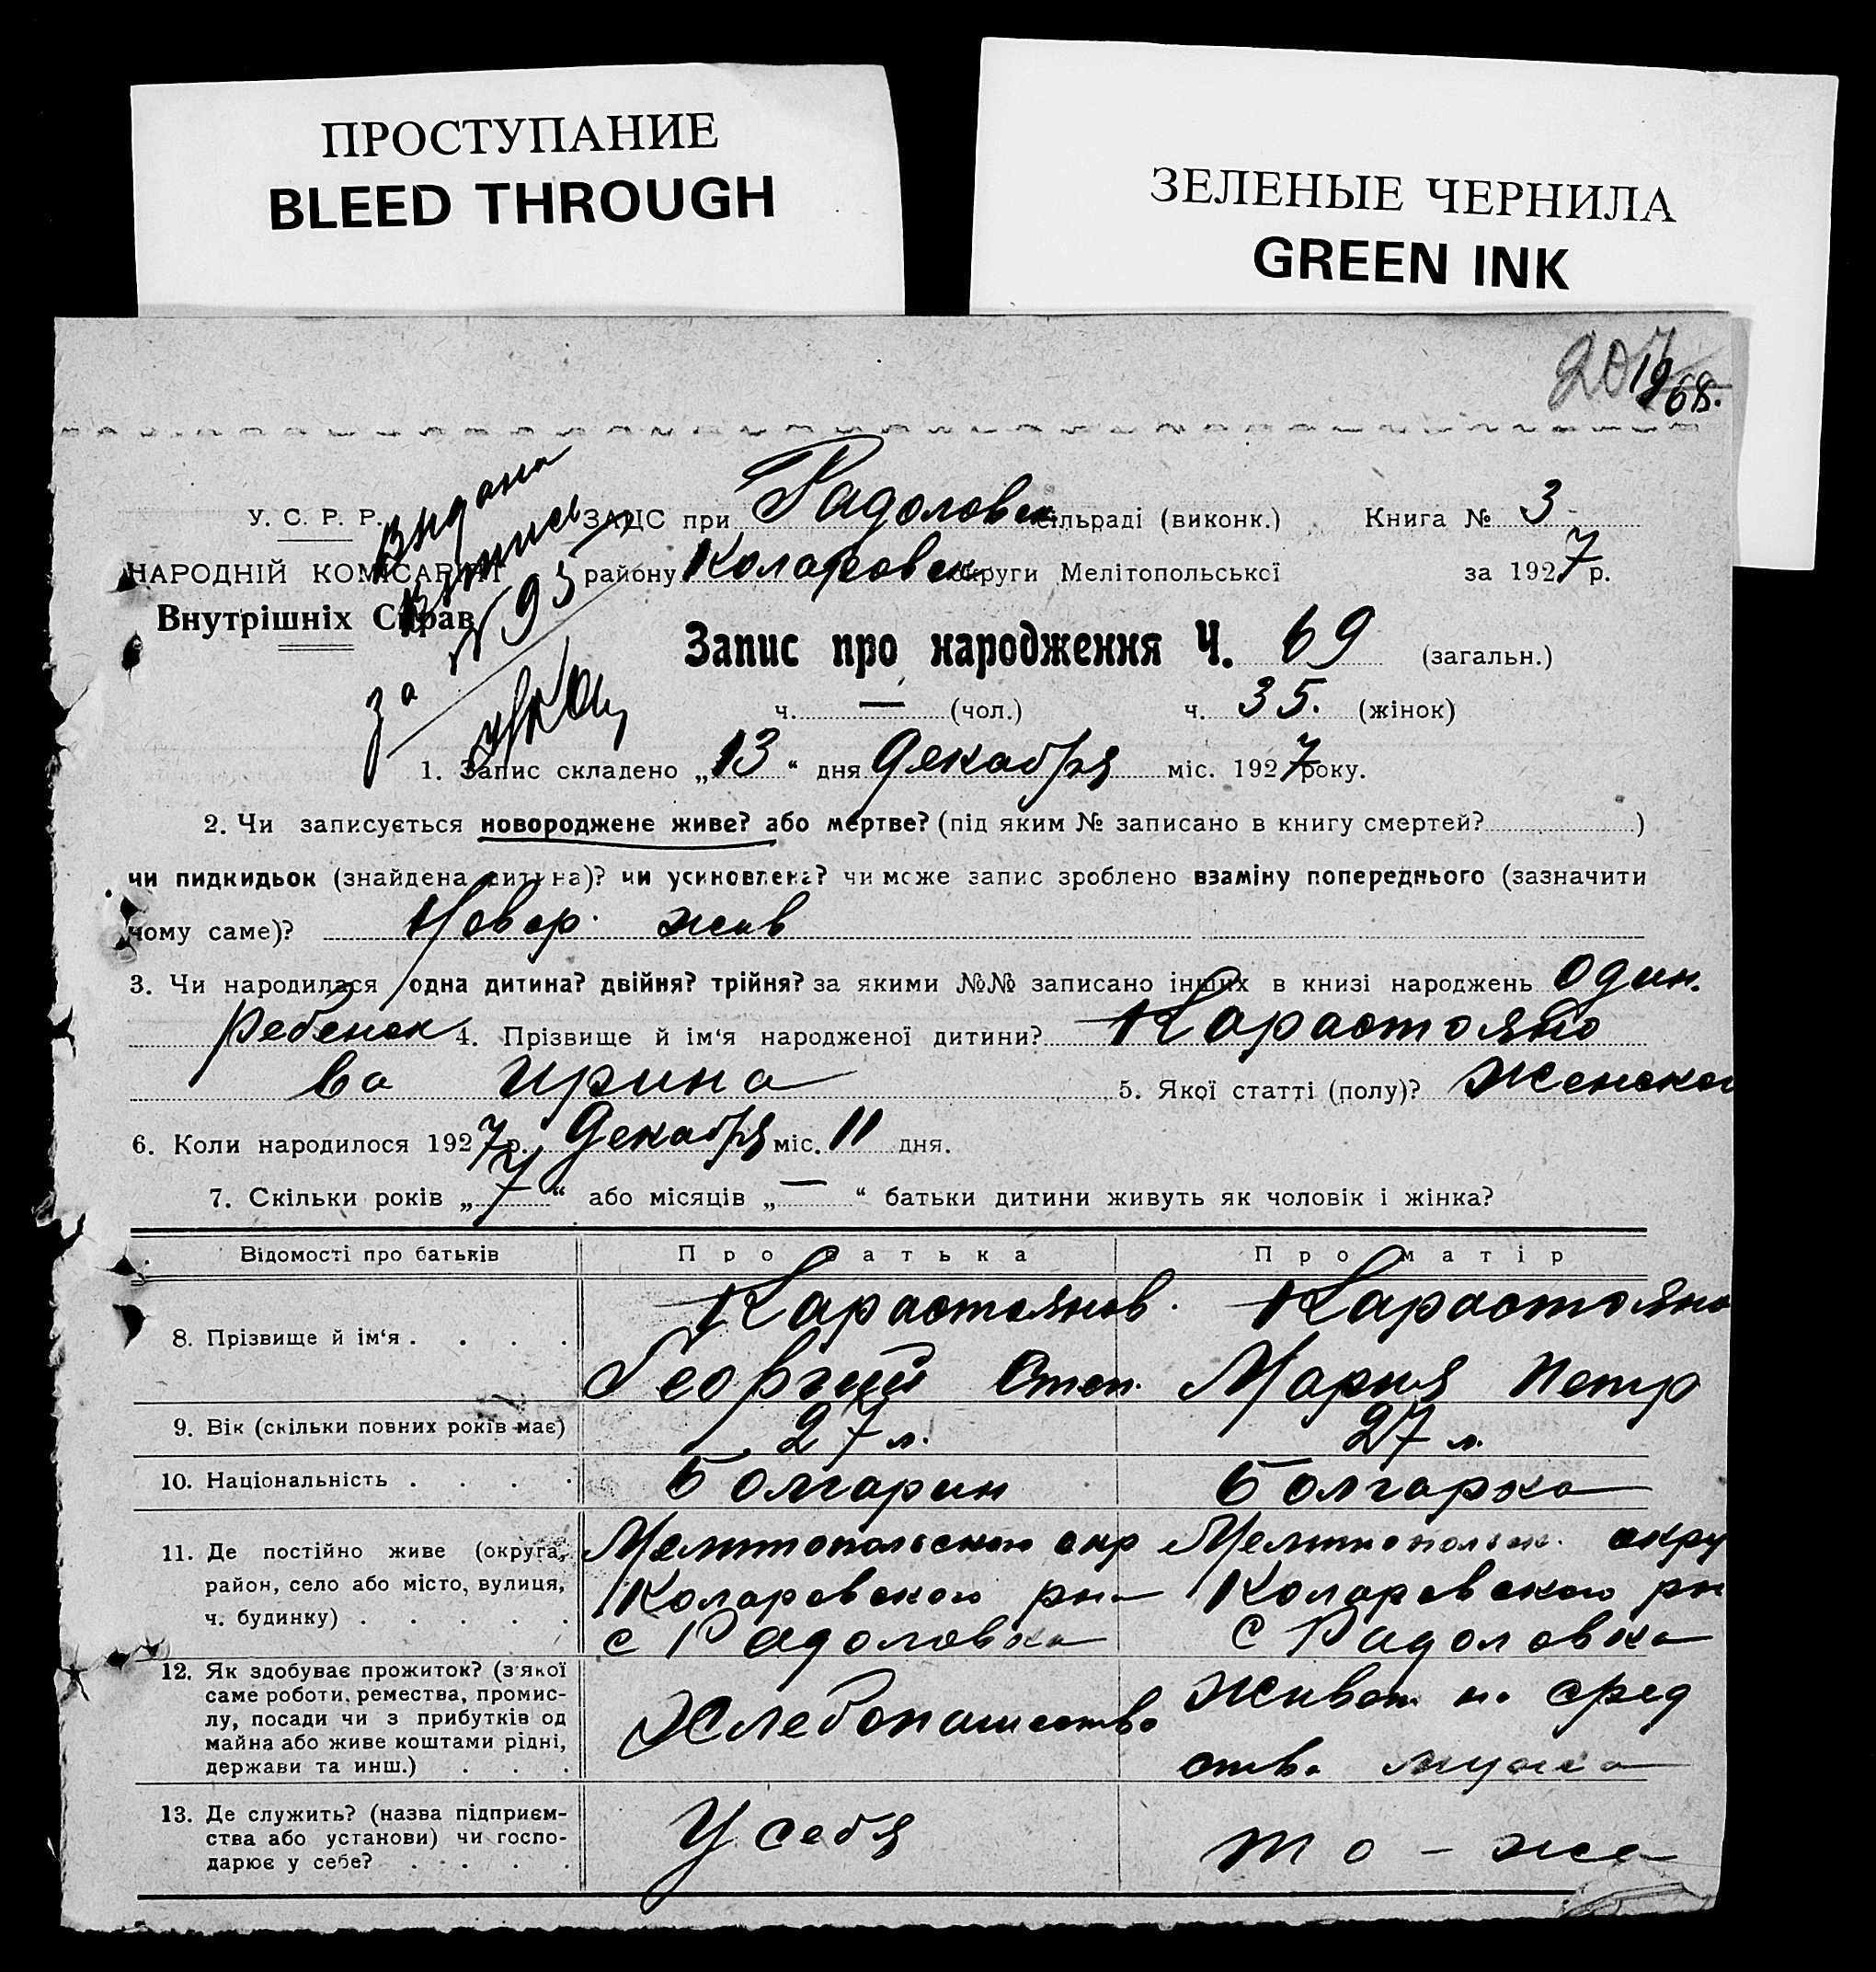 ПРОСТУПАНИЕ
BLEED THROUGH
ЗЕЛЕНЫЕ ЧЕРНИЛА
GREEN INK
У. С. Р. Р.
НАРОДНІЙ КОМІСАРІЯТ
Внутрішніх Справ
Видана
за № 95
ЗАЦС при Радоловск. сільраді (виконк.) Книга № 3
району Коларовск округи Мелітопольської за 1927 р.
Запис про народження Ч. 69 (загальн.)
ч. — (чол.) ч. 35. (жінок)
1. Запис складено „13“ дня Декабря міс. 1927 року.
2. Чи записується новороджене живе? або мертве? (під яким № записано в книгу смертей? )
чи пидкидьок (знайдена дитина)? чи усиновлена? чи може запис зроблено взаміну попереднього (зазначити
чому саме)? Новор. жив
3. Чи народилася одна дитина? двійня? трійня? за якими №№ записано інших в книзі народжень Один.
ребенок 4. Прізвище й ім‘я народженої дитини? Карастояно
ва Ирина 5. Якої статті (полу)? Женской
6. Коли народилося 1927 р. Декабря міс. 11 дня.
7. Скільки років „7“ або місяців „—“ батьки дитини живуть як чоловік і жінка?
Відомості про батьків Про батька Про матір
8. Прізвище й ім‘я . . . . Карастоянов. Карастояно
Георгий Степ. Мария Петр
9. Вік (скільки повних років має) 27 л. 27 л.
10. Національність . . . . Болгарин Болгарка
11. Де постійно живе (округа, Мелитопольского окр Мелитопольск. окру
район, село або місто, вулиця, Коларовского рн Коларовского рн
ч. будинку) . . . . . с Радоловка с Радоловка
12. Як здобуває прожиток? (з якої
саме роботи, ремества, промис- Хлебопашество Живет на сред
лу, посади чи з прибутків од
майна або живе коштами рідні, ства мужа
держави та инш.) . . .
13. Де служить? (назва підприєм- У себя
ства або установи) чи госпо- то - же
дарює у себе? . . . .